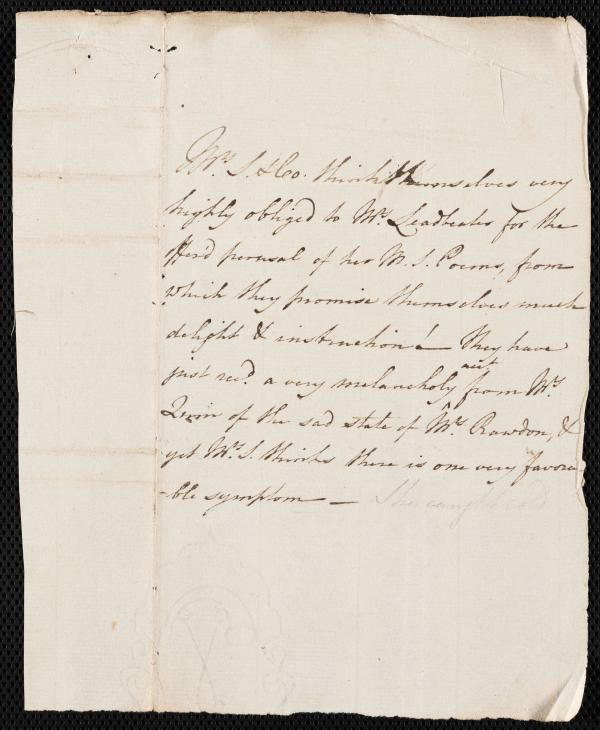 Mrs. S. & Co. think themselves very
highly obliged to Mrs. Leadbeater for the
offer'd perusal of her M.S. Poems, from
which they promise themselves much
delight & instruction! — they have
just recd. a very melancholy acct from Mr.
Quin of the sad state of Mrs. Rawdon, &
yet Mrs. S. thinks there is one very favora-
-ble symptom — She caught cold